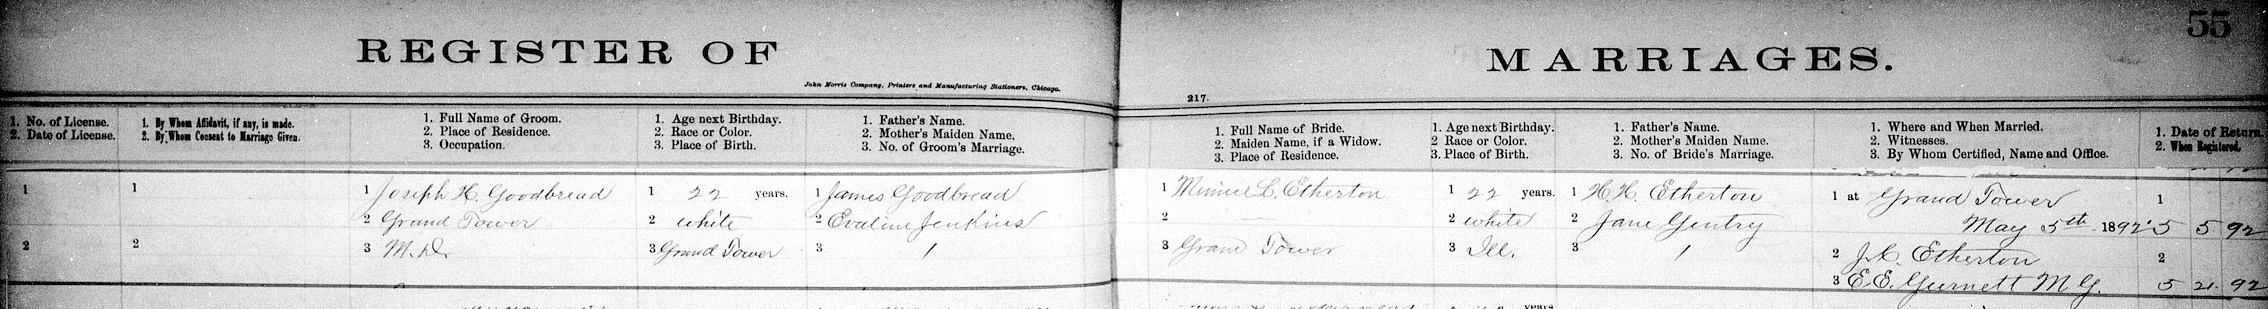 55
REGISTER OF MARRIAGES.
John Morris Company, Printers and Manufacturing Stationers, Chicago.
217.
1. No. of License.
2. Date of License.
1. By Whom Affidavit, if any, is made.
2. By Whom Consent to Marriage Given.
1. Full Name of Groom.
2. Place of Residence.
3. Occupation.
1. Age next Birthday.
2. Race or Color.
3. Place of Birth.
1. Father's Name.
2. Mother's Maiden Name.
3. No. of Groom's Marriage.
1. Full Name of Bride.
2. Maiden Name, if a Widow.
3. Place of Residence.
1. Age next Birthday.
2 Race or Color.
3. Place of Birth.
1. Father's Name.
2. Mother's Maiden Name.
3. No. of Bride's Marriage.
1. Where and When Married.
2. Witnesses.
3. By Whom Certified, Name and Office.
1. Date of Return.
2. When Registered.
1
2
1
2
1 Joseph H. Goodbread
2 Grand Tower
3 M.D.
1 22 years.
2 white
3 Grand Tower
1 James Goodbread
2 Evaline Jenkins
3 1
1 Minnie L. Etherton
2 —
3 Grand Tower
1 22 years.
2 white
3 Ill.
1 H. H. Etherton
2 Jane Gentry
3 1
1 at Grand Tower
May 5th 1892
2 Etherton
3 E.E. Gurnett M.G.
1
5 5 92
2
5 21 92
years